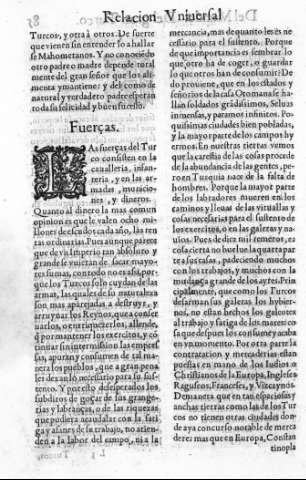 Relacion Vniuersal
Turcos, y otra â otros. De suerte
que vienen sin entender lo a hallar
se Mahometanos. Y no conociẽdo
otro padre o madre depẽde total
mente del gran señor que los ali-
menta y mantiene: y del como de
natural y verdadero padre esperan
to da su felicidad y buen sucesso.
Fuerças.
LAs fuerças del Tur
co consisten en la
caualleria, infan-
teria, y en las ar-
madas, municio-
nes, y dineros.
Quanto al dinero la mas comun
opinion es que le valen ocho mi-
llones de ducados cada año, las ren
tas ordinarias. Pues aunque parece
que de vn Imperio tan absoluto y
grande se vuieran de sacar mayo-
res sumas, con todo no es assi, por
que los Turcos solo cuydan de las
armas, las quales de su naturaleza
son mas aparejadas a destruyr, y
arruynar los Reynos, que a conser
uarlos, o enriquecerlos, allende,
q̃ por mantener los exercitos, y cõ
tinuar sin intermission las empres
sas, apuran y consumen de tal ma
nera los pueblos, que a gran pena
les dexan lo necessario para su sus-
tento. Y por esto desperados los
subditos de gozar de sus grange-
rias y labranças, o de las riquezas
que pudiera acaudalar con la fati-
ga y afanes de su trabajo, no atien-
den a la labor del campo, ni a la
mercancia, mas de quanto les es ne
cessario para el sustento. Porque
de que importancia es sembrar lo
que otro ha de coger, o guardar
lo que otros han de consumir? De
do prouiene, que en los estados y
señorios de la casa Otomana se ha-
llan soldados grãdissimos, Seluas
inmensas, y paramos infinitos. Po-
quissimas ciudades bien pobladas,
y la mayor parte de los campos hy
ermos. En nuestras tierras vemos
que la carestia de las cosas procede
de la abundancia de las gentes, pe-
ro en Turquia nace de la falta de
hombres. Porque la mayor parte
de los labradores mueren en los
caminos y lleuar de las vituallas y
cosas necessarias para el sustento de
los exercitos, o en las galeras y na-
uios. Pues de diez mil remeros, co
sa cierta no bueluen la quarta par
te a sus casas, padeciendo muchos
con los trabajos, y muchos con la
mudãça grande de los ayres. Prin
cipalmente, que como los Turcos
desarman las galeras los hybier-
nos, no estan hechos los galeotes
al trabajo y fatiga de los mares cõ
sa que despues los consume y acaba
en vn momento. Por otra parte la
contratation y mercaderias estan
puestas en mano de los Iudios o
Christianos de la Europa, Ingleses
Raguseos, Franceses, y Viscaynos.
De manera que en tan espaciosas y
anchas tierras como las de los Tur
cos no tienen otras ciudades don-
de aya concurso notable de merca
deres: mas que en Europa, Constan
tinopla